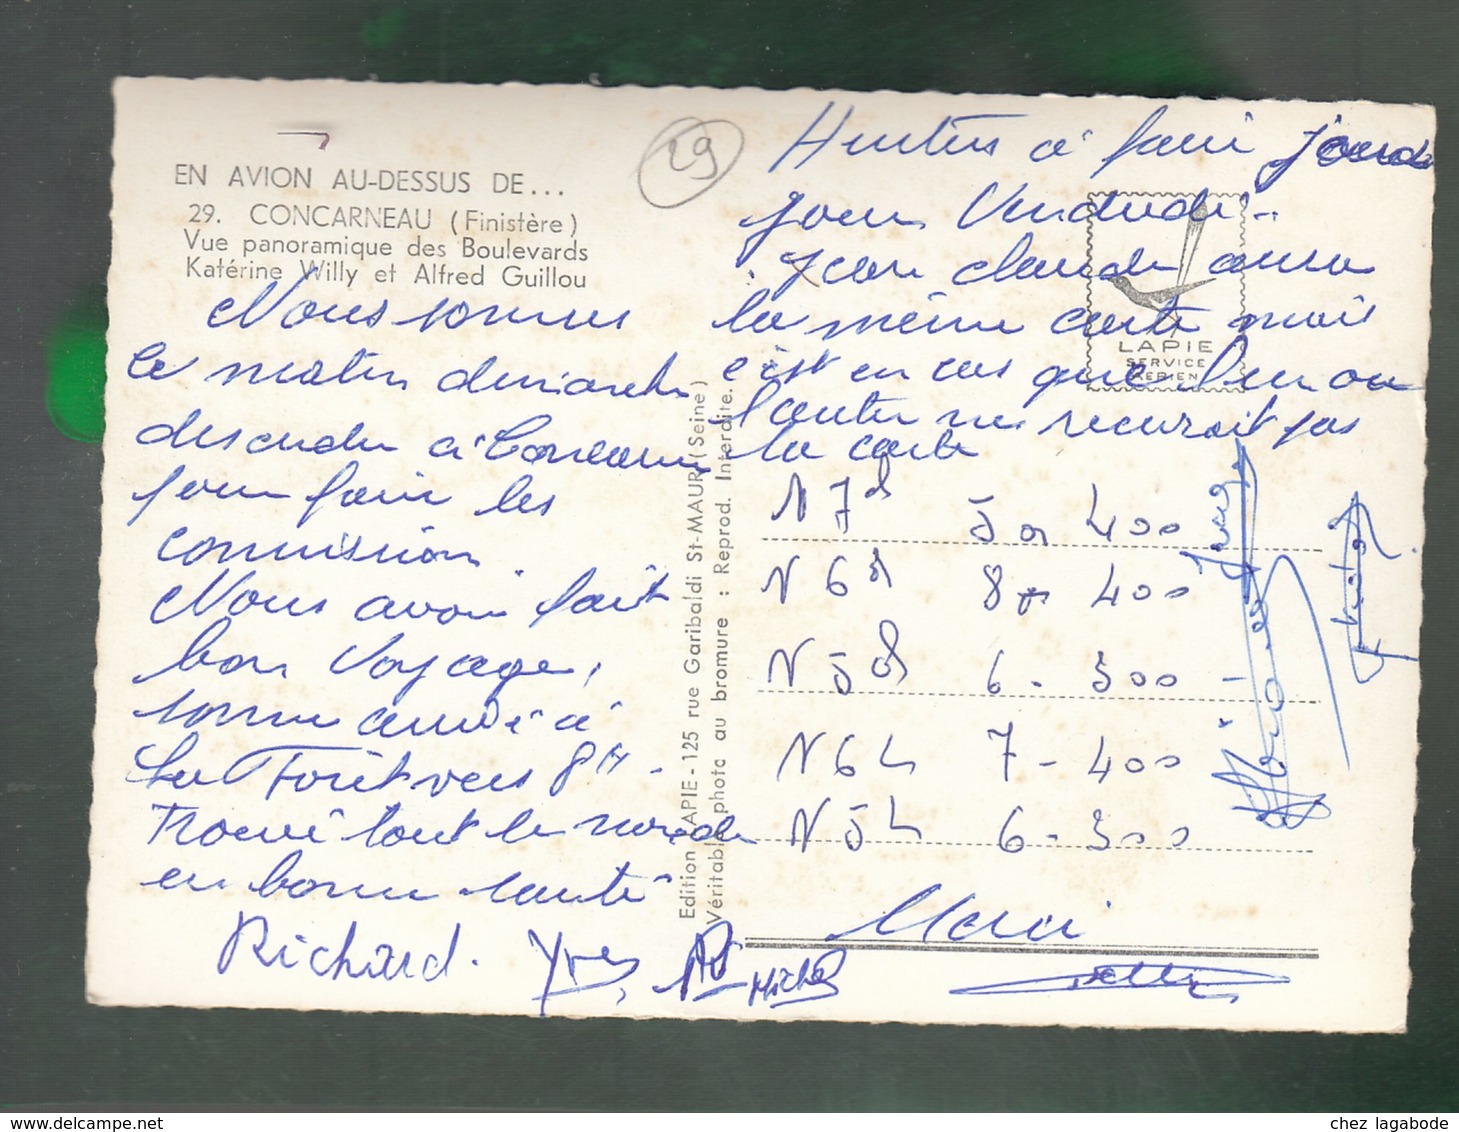 EN AVION AU-DESSUS DE...
29. CONCARNEAU (Finistère)
Vue panoramique des Boulevards
Katérine Willy et Alfred Guillou
29
Nous sommes
ce matin dimanche
descendu à Concarneau
pour faire les
commission
Nous avons fait
bon voyage,
somme arrivé à
La Forêt vers 8H -
Trouvé tout le monde
en bonne santé
Richard. Yves,
Michel
Edition LAPIE - 125 rue Garibaldi St-MAUR (Seine)
Véritable photo au bromure : Reprod. Interdite.
à faire
pour Vendredi -
Jean Claude aura
la même carte mais
c'est en cas que l'un ou
l'autre ne recevrait pas
la carte
LAPIE
SERVICE
AERIEN
N 7 d 5 a 400
N 6 d 8 a 400
N 5 d 6 - 300 -
N 6 L 7 - 400
N 5 L 6 - 300
Merci
chez lagabode